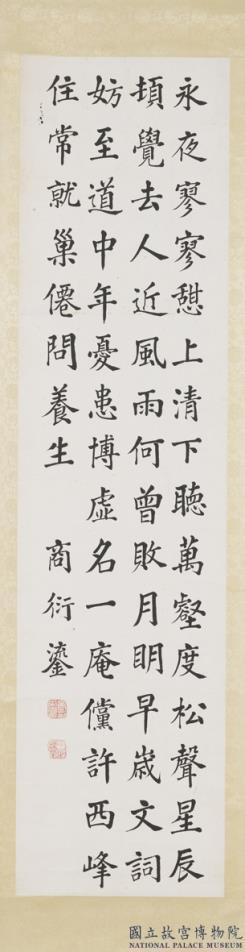 永夜寥寥憩上清下聽萬壑度松聲星辰
頂覺去人近風雨何曾敗月明早歲文詞
妨至道中年憂患博虛名一庵儻許西峰
住常就巢僊問養生
商衍鎏
國立故宮博物院
NATIONAL PALACE MUSEUM